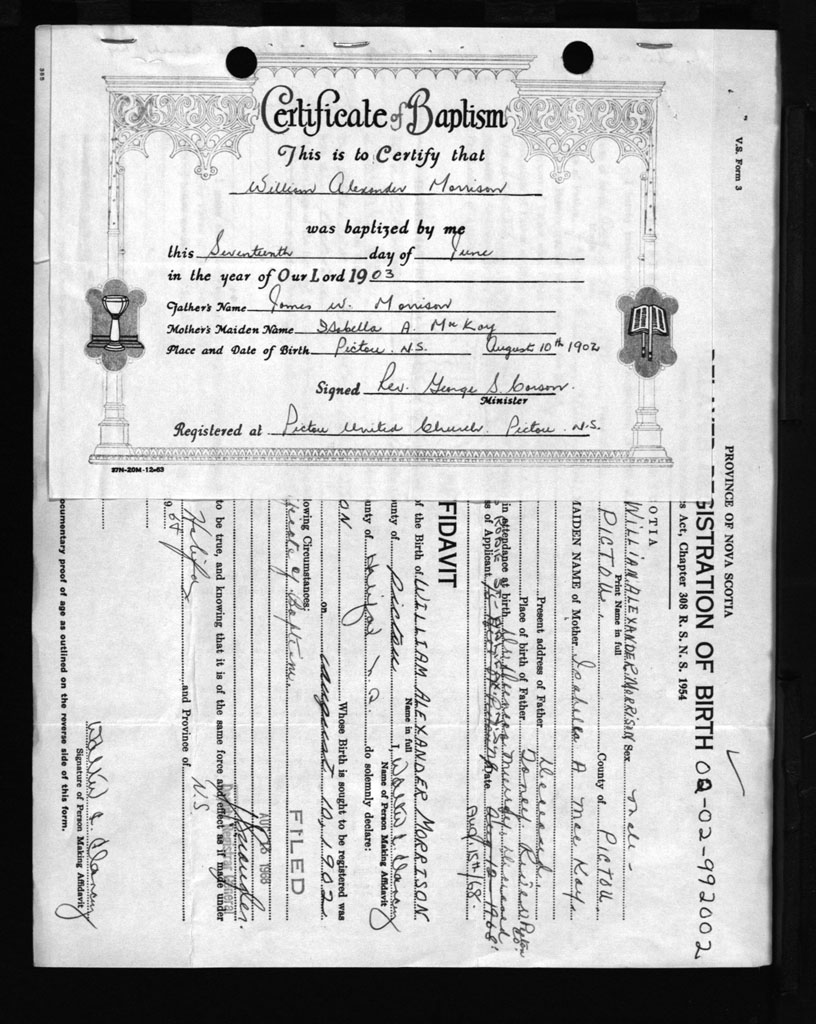 Certificate of Baptism
This is to Certify that
William Alexander Morrison
was baptized by me
this Seventeenth day of June
in the year of Our Lord 1903
Father's Name James W. Morrison
Mother's Maiden Name Isabella A. MacKay
Place and Date of Birth Pictou N.S. August 10th 1902
Signed Rev. George S. Carson.
Minister
Registered at Pictou United Church. Pictou N.S.
37N-20M-12-63
V.S. Form 3
PROVINCE OF NOVA SCOTIA
GISTRATION OF BIRTH 02-02-992002
s Act, Chapter 308 R. S. N. S., 1954
OTIA
WILLIAM ALEXANDER MORRISON Sex male
Print Name in full
PICTOU, County of PICTOU
MAIDEN NAME of Mother Isabella A MacKay,
Present address of Father Deceased.
Place of birth of Father
in attendance at birth Murray, deceased
s of Applicant Date Aug 12 - 1968.
Aug. 15th/68.
FIDAVIT
f the Birth of WILLIAM ALEXANDER MORRISON
Name in full
ounty of Pictou I,
Name of Person Making Affidavit
ounty of Halifax N.S. do solemnly declare:
ON Whose Birth is sought to be registered was
on August 10, 1902
lowing Circumstances:
icate of Baptism. FILED
AUG 1968
Deputy Registrar General
to be true, and knowing that it is of the same force and effect as if made under
Halifax and Province of N.S.
68
Signature of Person Making Affidavit
ocumentary proof of age as outlined on the reverse side of this form.